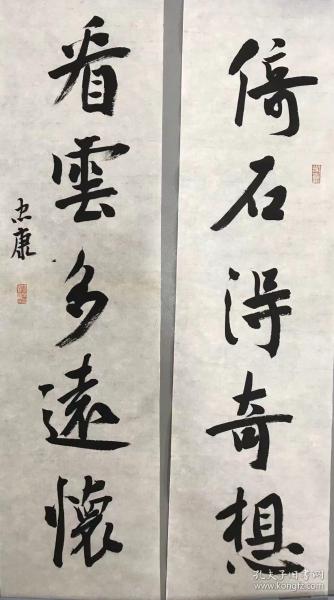 倚石得奇想
看雲多遠懷
忠康
孔夫子旧书网
www.kongfz.com